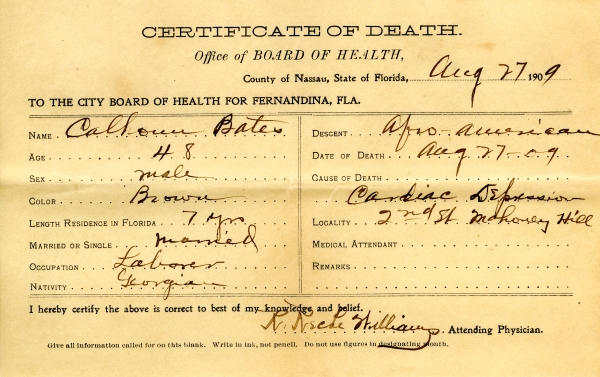 CERTIFICATE OF DEATH.
Office of BOARD OF HEALTH,
County of Nassau, State of Florida, Aug 27 1909
TO THE CITY BOARD OF HEALTH FOR FERNANDINA, FLA.
NAME Calhoun Bates
AGE 48
SEX male
COLOR Brown
LENGTH RESIDENCE IN FLORIDA 7 yrs
MARRIED OR SINGLE married
OCCUPATION Laborer
NATIVITY Georgian
DESCENT Afro-american
DATE OF DEATH Aug 27-09
CAUSE OF DEATH
Cardiac Depression
LOCALITY 2nd St. Mahoney Hill
MEDICAL ATTENDANT
REMARKS
I hereby certify the above is correct to best of my knowledge and belief.
Williams Attending Physician.
Give all information called for on this blank. Write in ink, not pencil. Do not use figures in designating month.